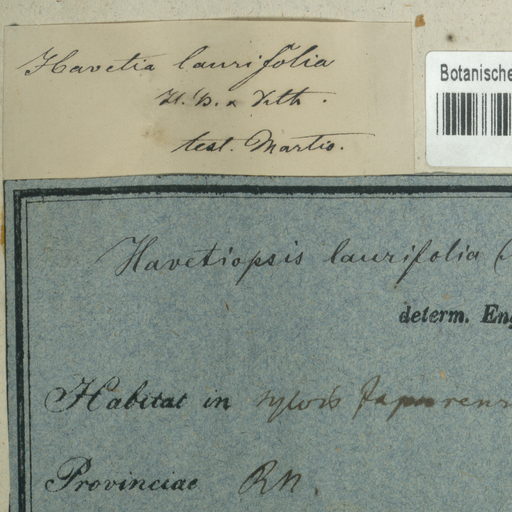 Havetia laurifolia
H. B. & Kth.
test. Martio.
Botanische
Havetiopsis laurifolia (
determ. Eng
Habitat in sylvis Japurens
Provinciae R n.